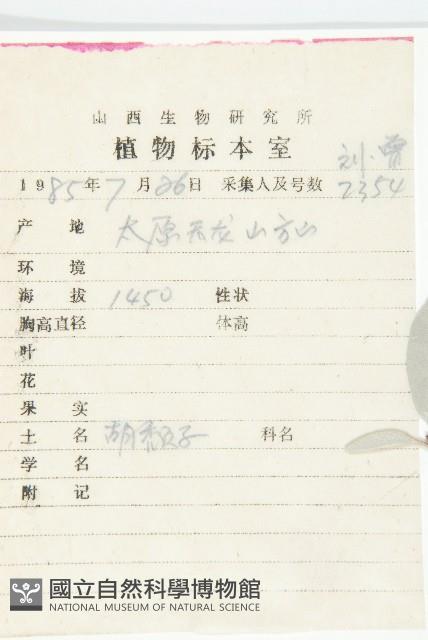 山西生物研究所
植物标本室
刘、曾
1985年7月26日 采集人及号数 2354
产 地 太原天龙山方山
环 境
海 拔 1450 性状
胸高直径 体高
叶
花
果 实
土 名 胡颓子 科名
学 名
附 记
國立自然科學博物館
NATIONAL MUSEUM OF NATURAL SCIENCE